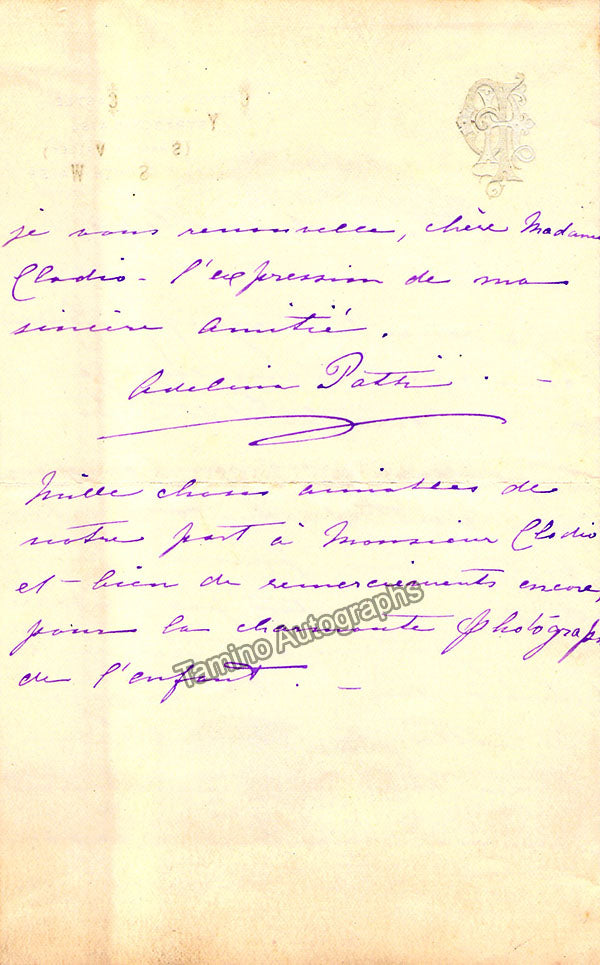 je vous renouvelle, chère Madame
Clodio - l'expression de ma
sincère amitié.
Adelina Patti. -
Mille choses aimables de
notre part à Monsieur Clodio
et - bien de remerciements encore,
pour la charmante photógraph
de l'enfant. -
Tamino Autographs